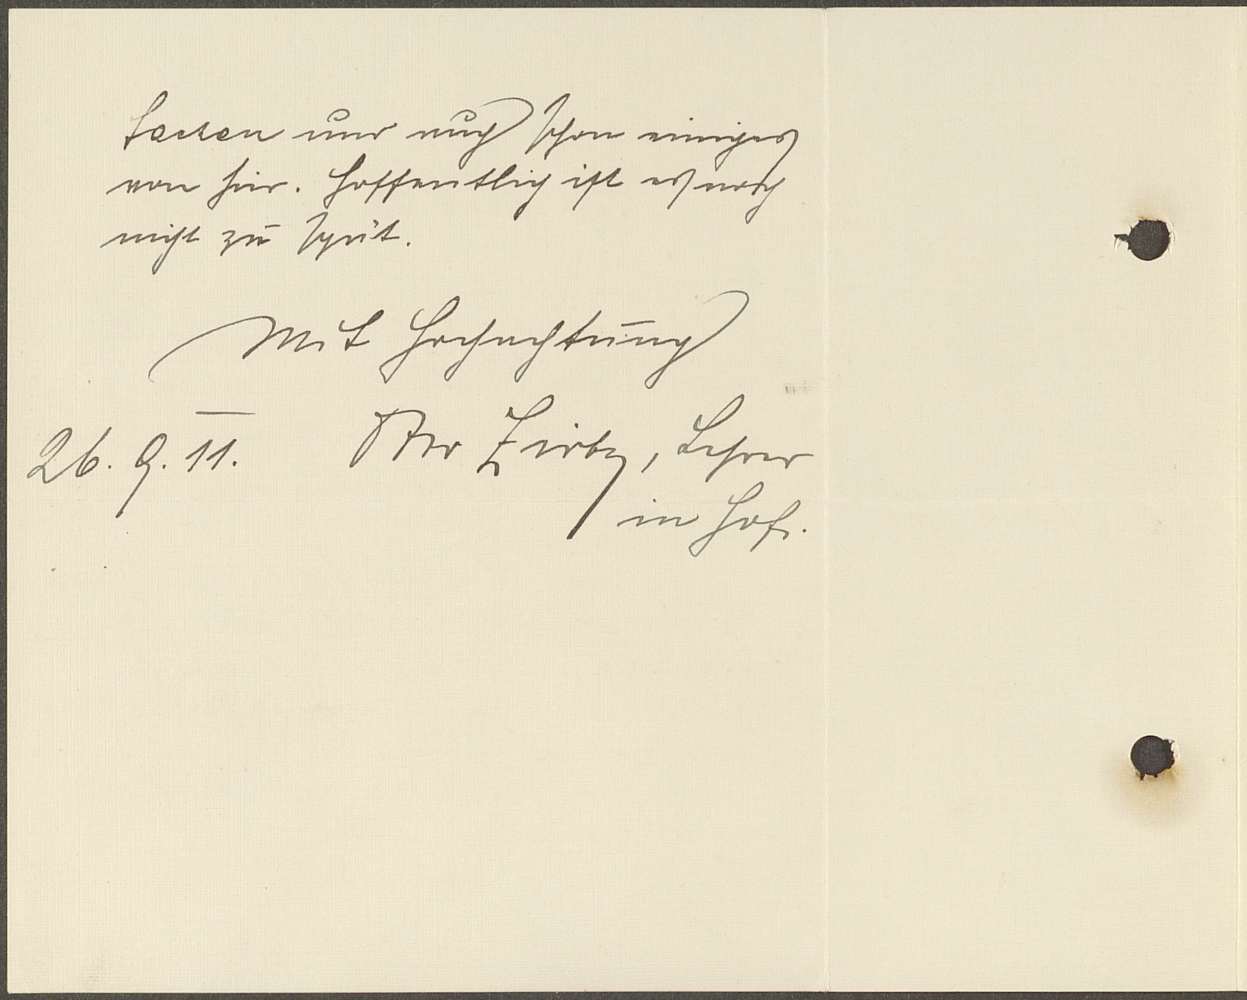 und auch schon einiges
von hier. Hoffentlich ist es noch
nicht zu spät.
Mit Hochachtung
26. 9. 11. Lehrer
in Hof.